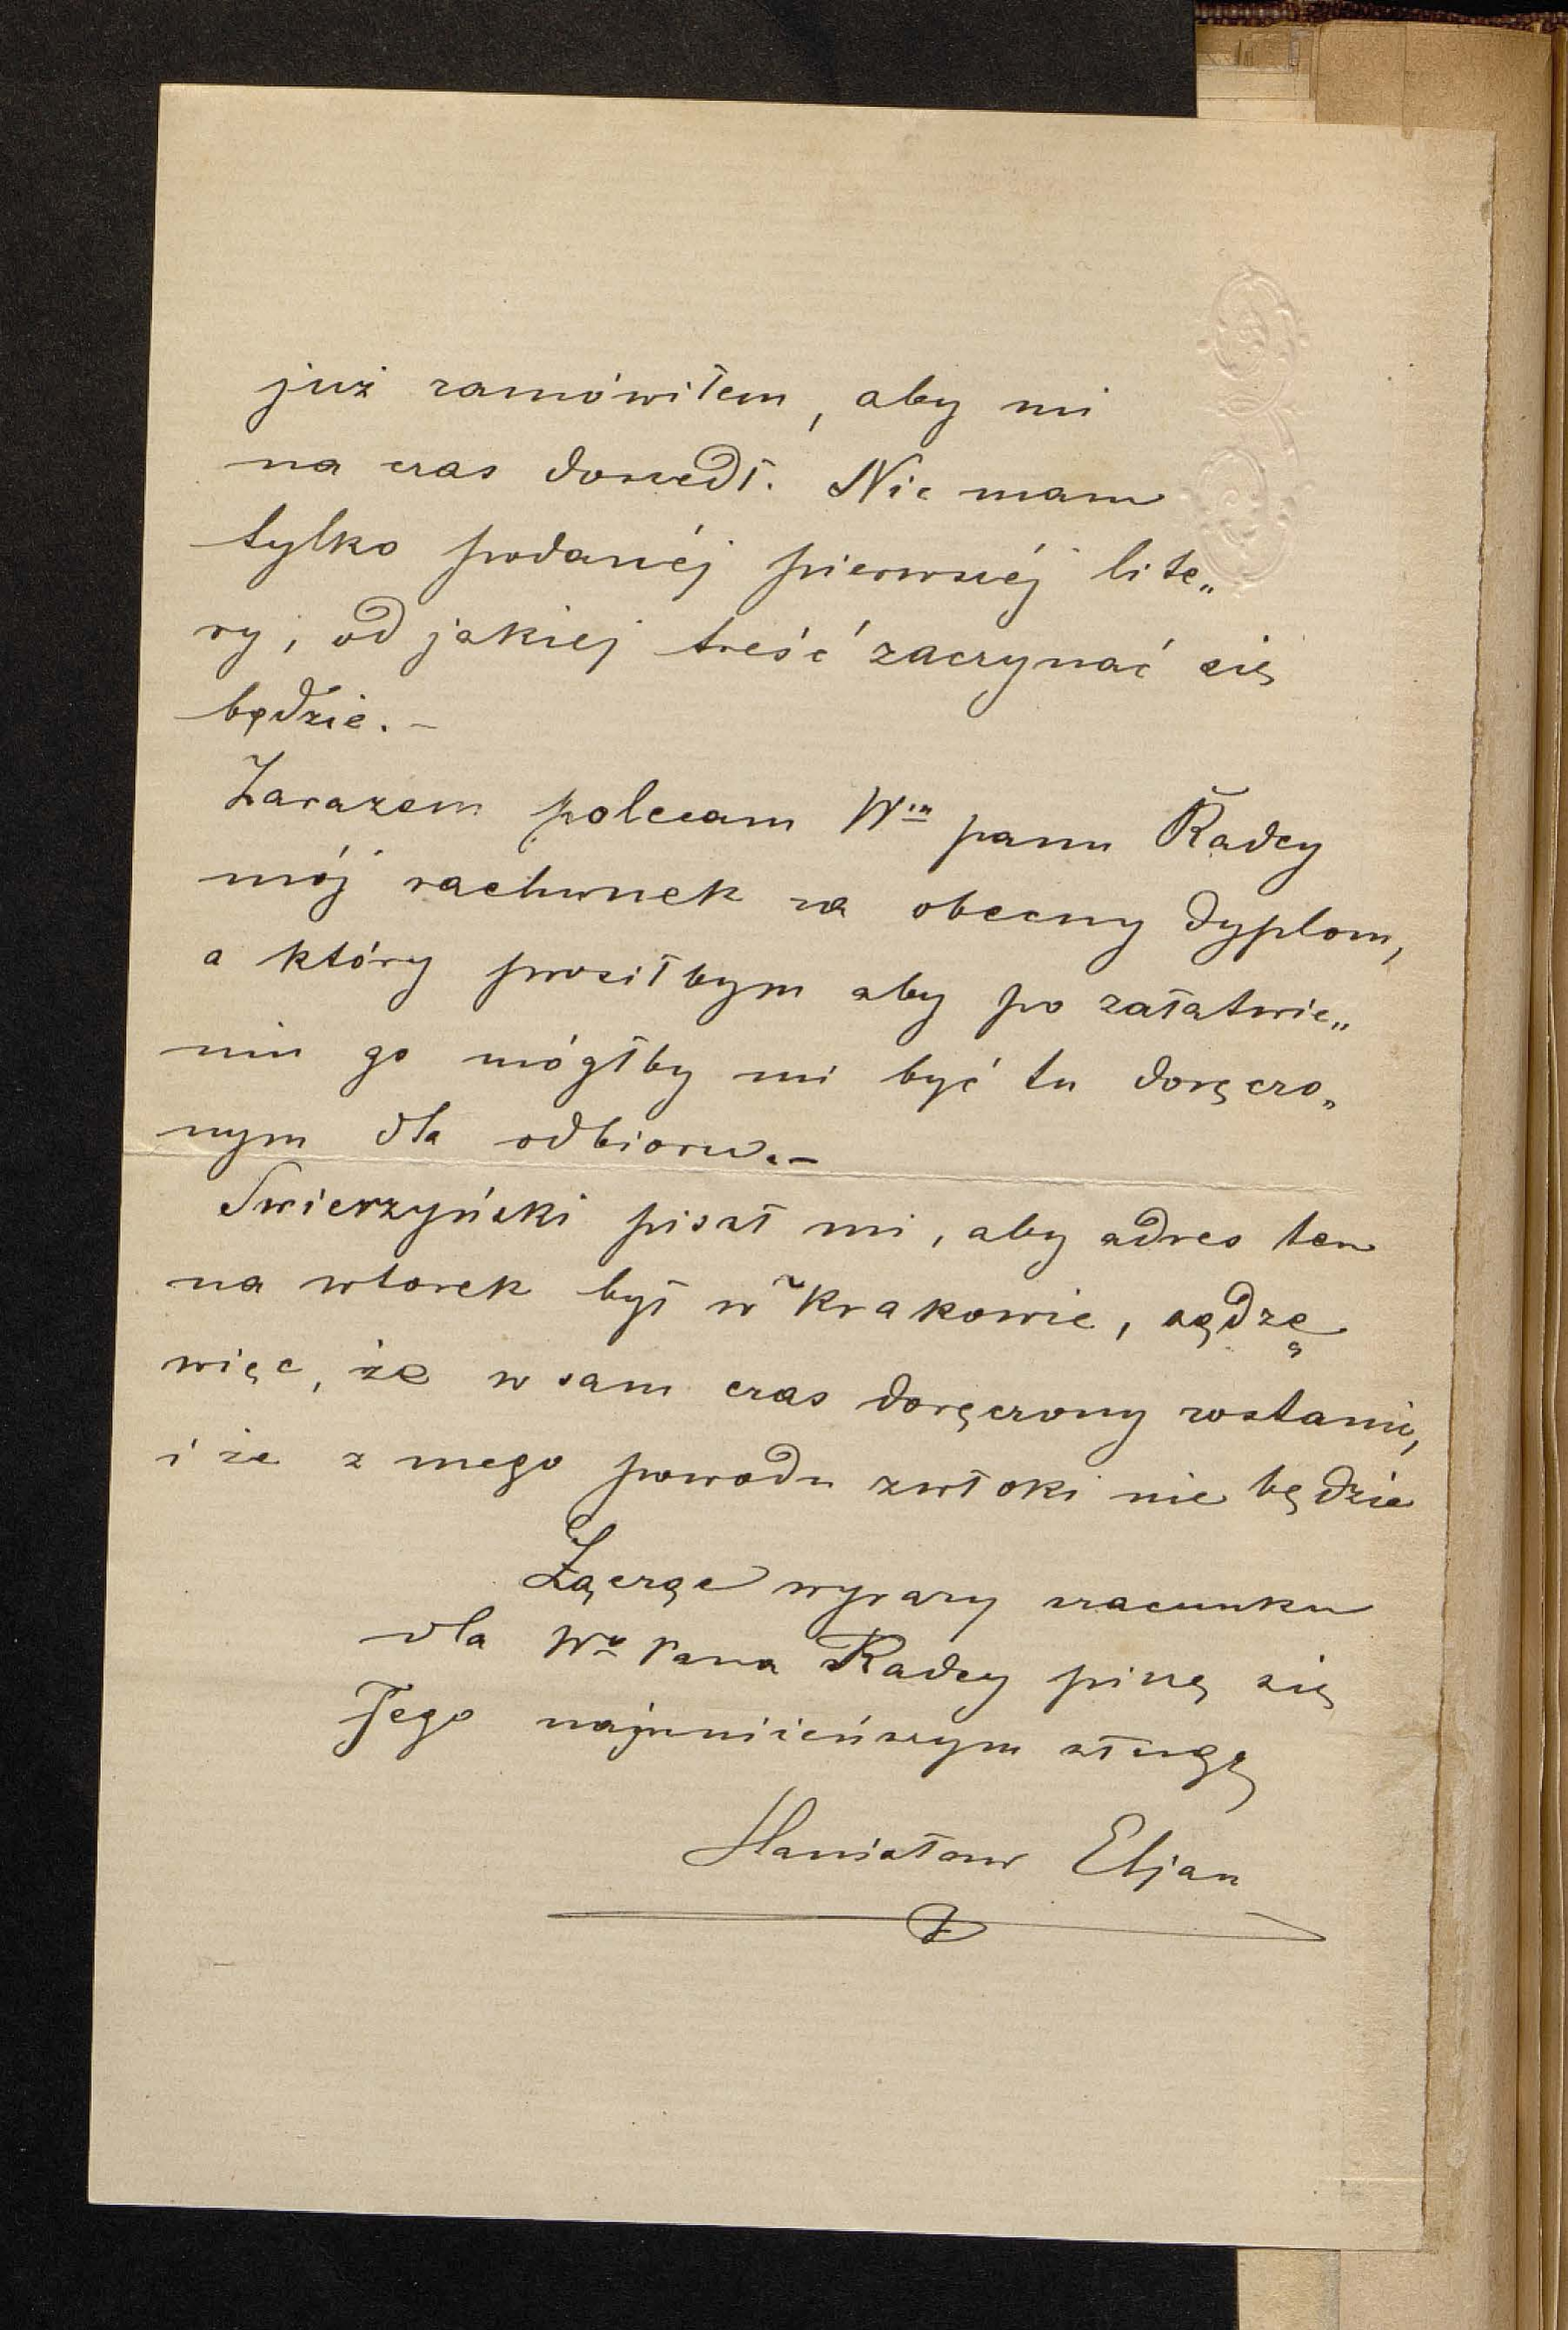 już zamówiłem, aby mi
na czas doszedł. Nie mam
tylko podanéj pierwszéj lite„
ry, od jakiej treść zaczynać się
będzie. –
Zarazem polecam Wm panu Radcy
mój rachunek za obecny dyplom,
a który prosiłbym aby po załatwie„
niu go mógłby mi być tu doręczo„
nym dla odbioru. –
Swierzyński pisał mi, aby adres ten
na wtorek był w Krakowie, sądzę
więc, że w sam czas doręczony zostanie,
i że z mego powodu zwłoki nie będzie
Łącząc wyrazy szacunku
dla Wo Pana Radcy piszę się
Jego najuniżeńszym sługą
Stanisław Eljasz